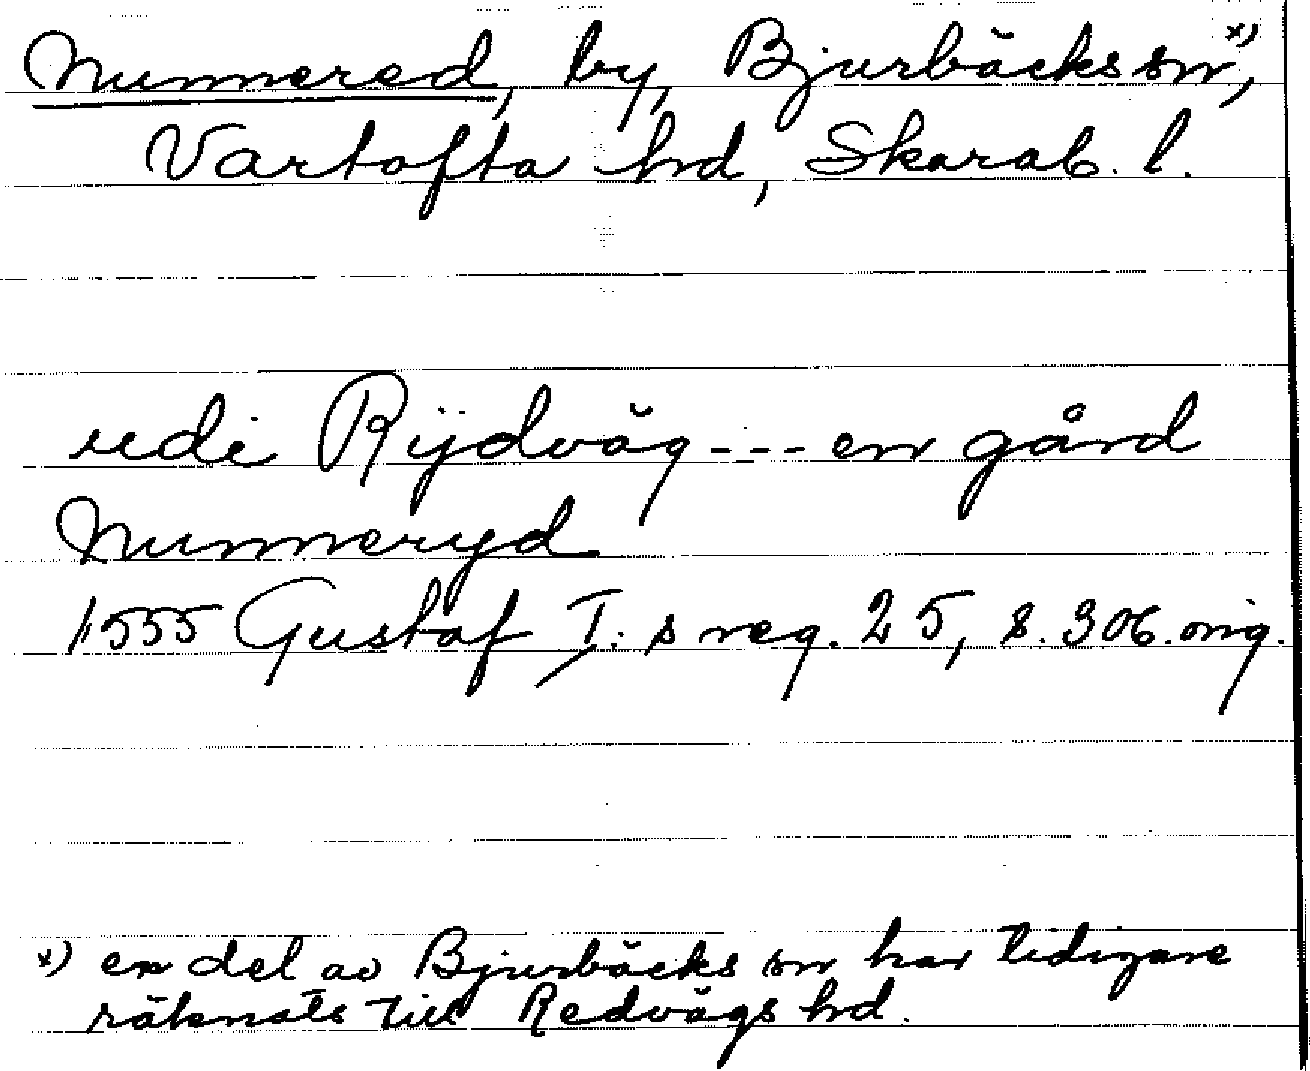 Nunnered, by, Bjurbäcks sn, x)
Vartofta hd, Skarab. l.
udi Rÿdväg --- en gård
Nunneryd
1555 Gustaf I:s reg. 25, s. 306. orig.
x) en del av Bjurbäcks sn har tidigare
räknats till Redvägs hd.